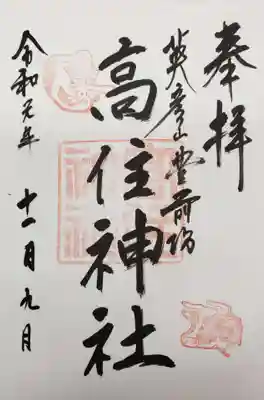 奉拝
英彦山豊前坊
高住神社
令和元年 十一月九日